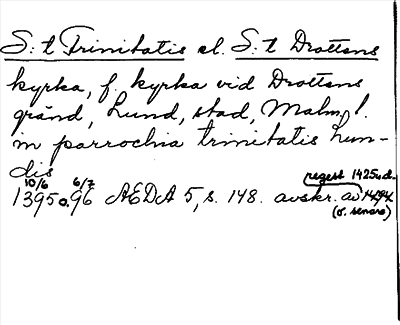 S:t Trinitatis el. S:t Drottens
kyrka, f. kyrka vid Drottens
gränd, Lund, stad, Malm. l.
in parrochia trinitatis lun-
dis
10/6 6/7 regest 1425 u.d.
1395 o. 96 AEDA 5, s. 148. avskr. av
(o. senare)